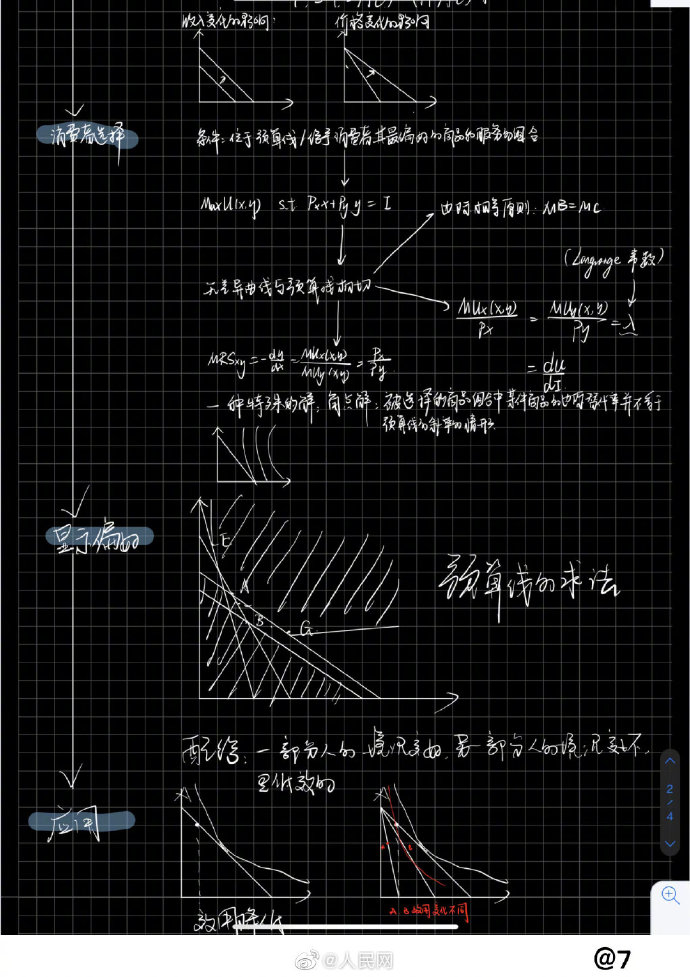 收入变化的影响:
价格变化的影响
消费者选择
条件:位于预算线/给予消费者其最偏好的商品和服务的组合
MaxU(x,y) s.t Pxx+Pyy=I
边际相等原则:MB=MC
(Language 乘数)
无差异曲线与预算线相切
MUx(x,y)/Px = MUy(x,y)/Py = λ
= du/dI
MRSxy=-dy/dx=MUx(x,y)/MUy(x,y)=Px/Py
一种特殊的解:角点解:被选择的商品组合中某件商品的边际替代率并不等于
预算线的斜率的情形.
显示偏好
E
A
B
G
预算线的求法
配给:一部分人的境况变好,另一部分人的境况变坏.
是低效的
应用
效用降低
A
B
A.B效用变化不同
2/4
@人民网
@7